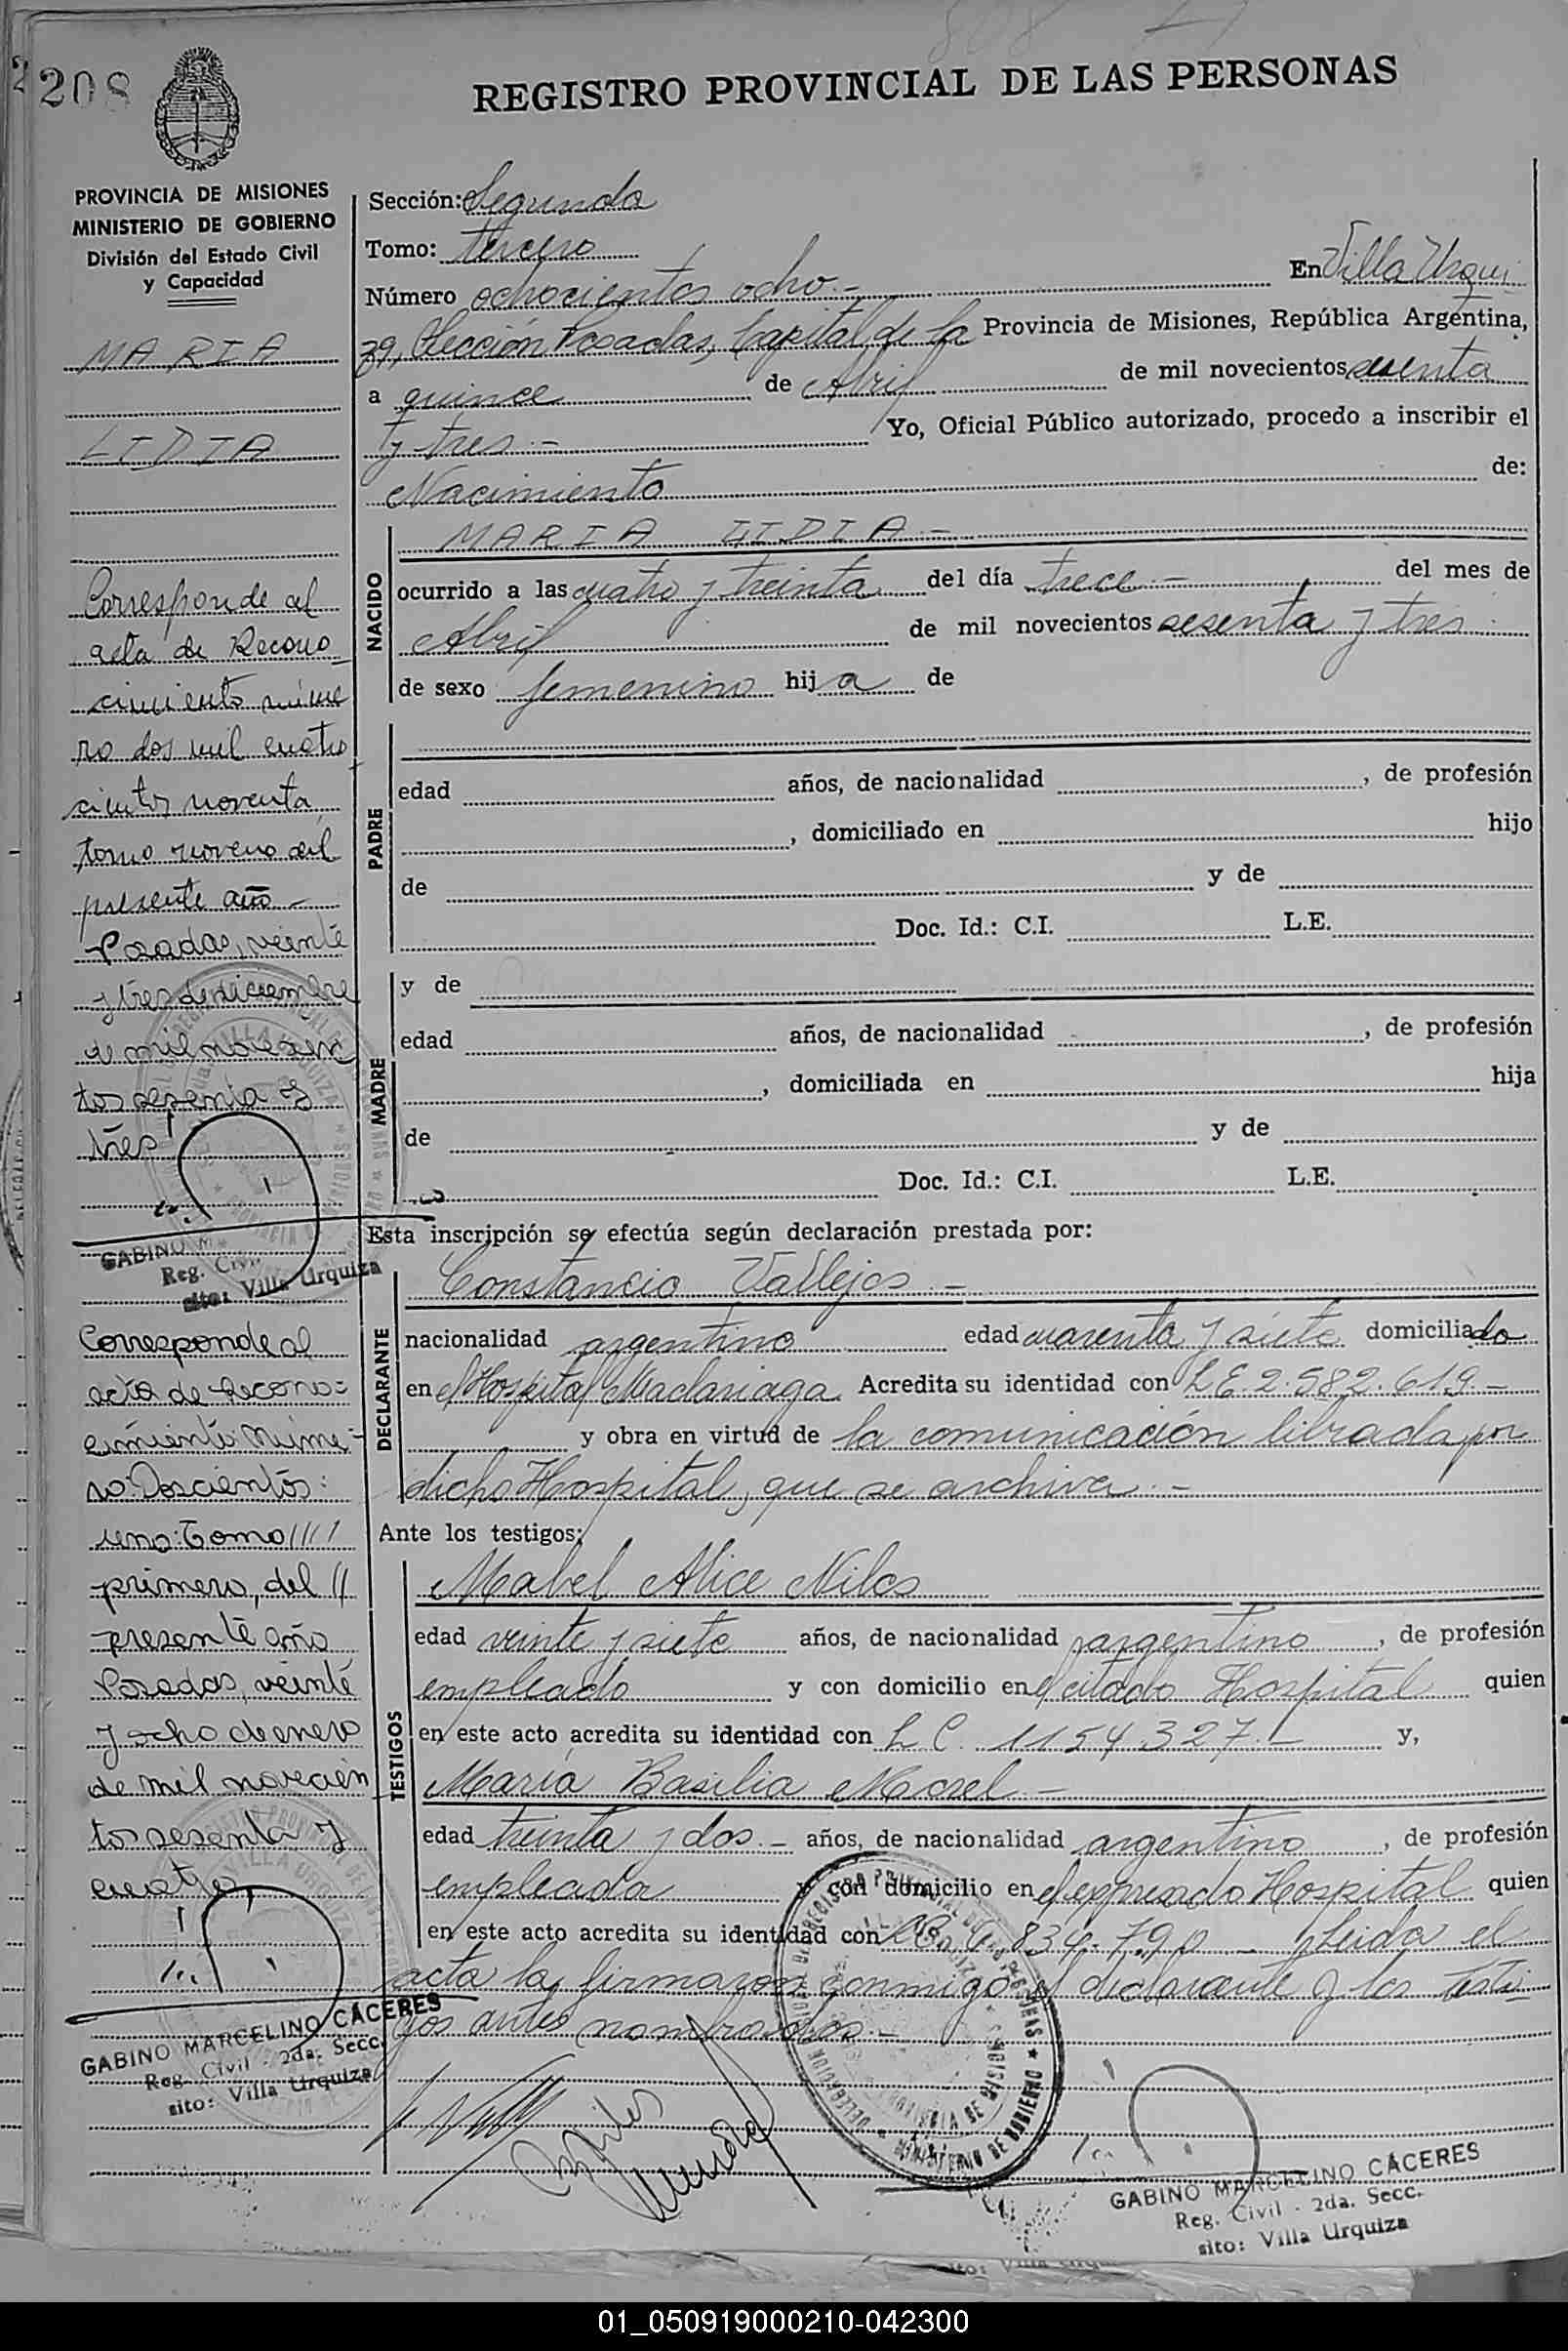 208
REGISTRO PROVINCIAL DE LAS PERSONAS
PROVINCIA DE MISIONES
MINISTERIO DE GOBIERNO
División del Estado Civil
y Capacidad
MARIA
LIDIA
Corresponde al
acta de Recono
cimiento núme
ro dos mil cuatro
cientos noventa
tomo noveno del
presente año -
Posadas, veinte
y tres de diciembre
de mil novecien
tos sesenta y
tres
GABINO M
Reg. Civil
sito: Villa Urquiza
Corresponde al
acta de Recono=
cimiento Núme=
ro: Doscientos:
uno: Tomo ////
primero, del //
presente año
Posadas, veinte
y ocho de enero
de mil novecien
tos sesenta y
cuatro
GABINO MARCELINO CACERES
Reg. Civil - 2da. Secc.
sito: Villa Urquiza
Sección: Segunda
Tomo: tercero
Número ochocientos ocho.- En Villa Urqui
za, Sección Posadas, Capital de la Provincia de Misiones, República Argentina,
a quince de Abril de mil novecientos sesenta
y tres.- Yo, Oficial Público autorizado, procedo a inscribir el
Nacimiento de:
NACIDO
MARIA LIDIA.-
ocurrido a las cuatro y treinta del día trece.- del mes de
Abril de mil novecientos sesenta y tres.
de sexo femenino hija de
PADRE
edad años, de nacionalidad , de profesión
, domiciliado en hijo
de y de
Doc. Id.: C.I. L.E.
MADRE
y de
edad años, de nacionalidad , de profesión
, domiciliada en hija
de y de
Doc. Id.: C.I. L.E.
Esta inscripción se efectúa según declaración prestada por:
DECLARANTE
Constancio Vallejos.-
nacionalidad argentino edad cuarenta y siete domiciliado
en el Hospital Madariaga Acredita su identidad con L.E. 2.582.619.-
y obra en virtud de la comunicación librada por
dicho Hospital, que se archiva.-
Ante los testigos:
TESTIGOS
Mabel Alice Nilos
edad veinte y siete años, de nacionalidad argentino , de profesión
empleado y con domicilio en el citado Hospital quien
en este acto acredita su identidad con L.C. 1154.327.- y,
María Basilia Morel.-
edad treinta y dos.- años, de nacionalidad argentino , de profesión
empleada y con domicilio en el expresado Hospital quien
en este acto acredita su identidad con 834.790 - Leida el
acta la firmaron conmigo el declarante y los testi-
gos antes nombrados.-
GABINO MARCELINO CACERES
Reg. Civil - 2da. Secc.
sito: Villa Urquiza
01_050919000210-042300